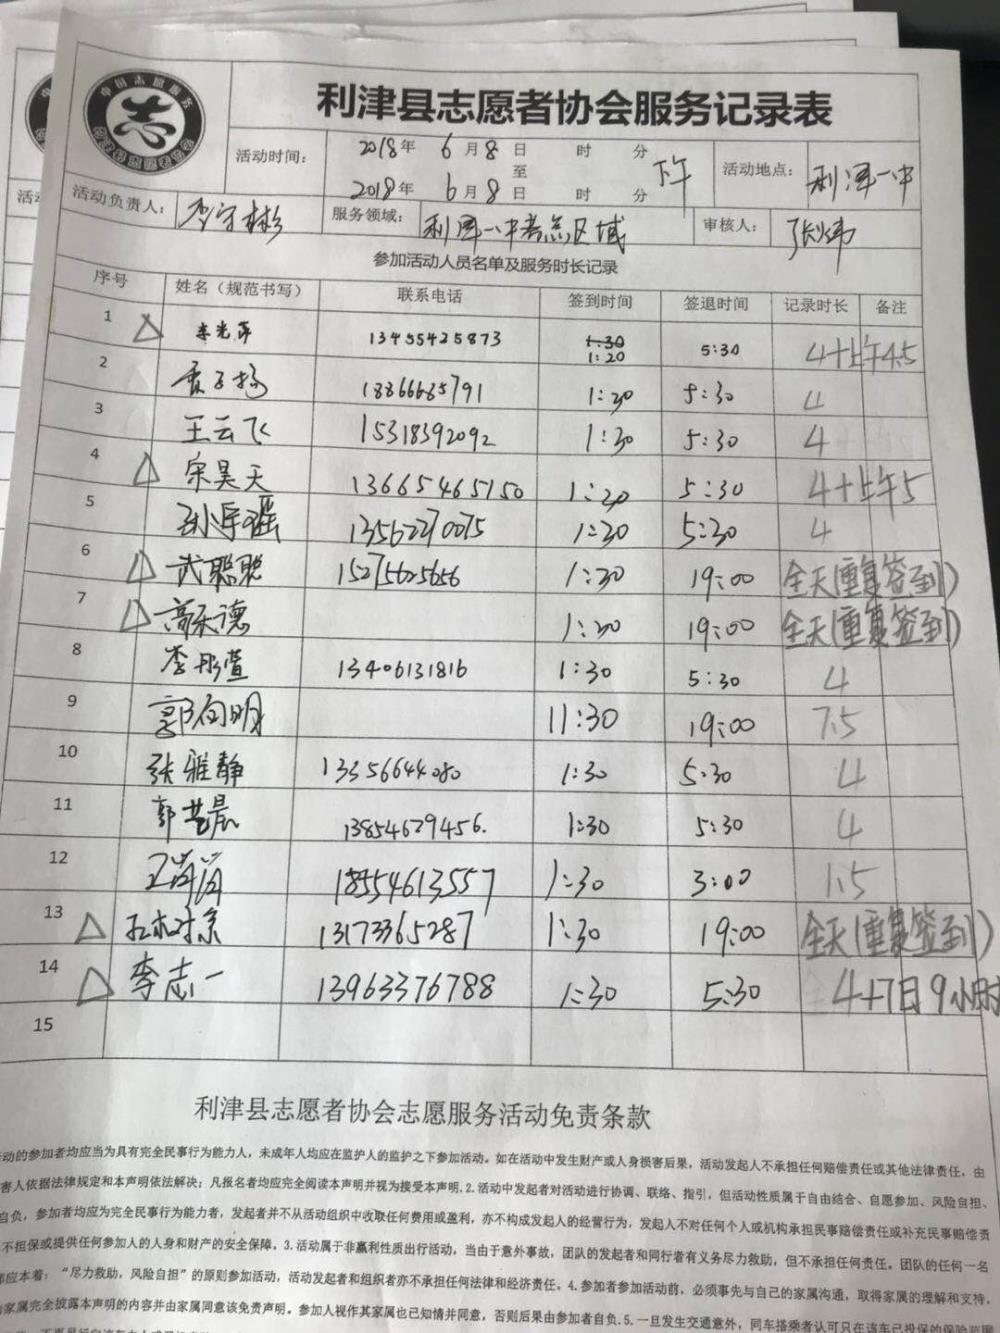 中国志愿服务
志
利津县志愿者协会服务记录表
活动时间： 2018年 6月8日 时 分
至 下午
2018年 6月8日 时 分
活动地点： 利津一中
活动负责人： 李守彬 服务领域： 利津一中考点区域 审核人： 张炜
参加活动人员名单及服务时长记录
序号 姓名（规范书写） 联系电话 签到时间 签退时间 记录时长 备注
1 △ 李光萍 13455425873 1:30 1:20 5:30 4+上午4.5
2 18866685791 1:30 5:30 4
3 王云飞 15318392092 1:30 5:30 4
4 △ 宋昊天 13665465150 1:30 5:30 4+上午5
5 13562270075 1:30 5:30 4
6 △ 武聪聪 15275625656 1:30 19:00 全天(重复签到)
7 △ 高天德 1:30 19:00 全天(重复签到)
8 李彤萱 13406131816 1:30 5:30 4
9 郭向明 11:30 19:00 7.5
10 张雅静 13356644080 1:30 5:30 4
11 郭艺晨 13854629456. 1:30 5:30 4
12 18554613557 1:30 3:00 1.5
13 △ 13173365287 1:30 19:00 全天(重复签到)
14 △ 李志一 13963376788 1:30 5:30 4+7日9小时
15
利津县志愿者协会志愿服务活动免责条款
动的参加者均应当为具有完全民事行为能力人，未成年人均应在监护人的监护之下参加活动。如在活动中发生财产或人身损害后果，活动发起人不承担任何赔偿责任或其他法律责任，由
害人依据法律规定和本声明依法解决；凡报名者均应完全阅读本声明并视为接受本声明.2.活动中发起者对活动进行协调、联络、指引，但活动性质属于自由结合、自愿参加、风险自担、
自负，参加者均应为完全民事行为能力者，发起者并不从活动组织中收取任何费用或盈利，亦不构成发起人的经营行为，发起人不对任何个人或机构承担民事赔偿责任或补充民事赔偿责
不担保或提供任何参加人的人身和财产的安全保障。3.活动属于非赢利性质出行活动，当由于意外事故，团队的发起者和同行者有义务尽力救助，但不承担任何责任。团队的任何一名
都应本着：“尽力救助，风险自担”的原则参加活动，活动发起者和组织者亦不承担任何法律和经济责任。4.参加者参加活动前，必须事先与自己的家属沟通，取得家属的理解和支持，
家属完全披露本声明的内容并由家属同意该免责声明。参加人视作其家属也已知情并同意，否则后果由参加者自负.5.一旦发生交通意外，同车搭乘者认可只在该车已投保的保险范围